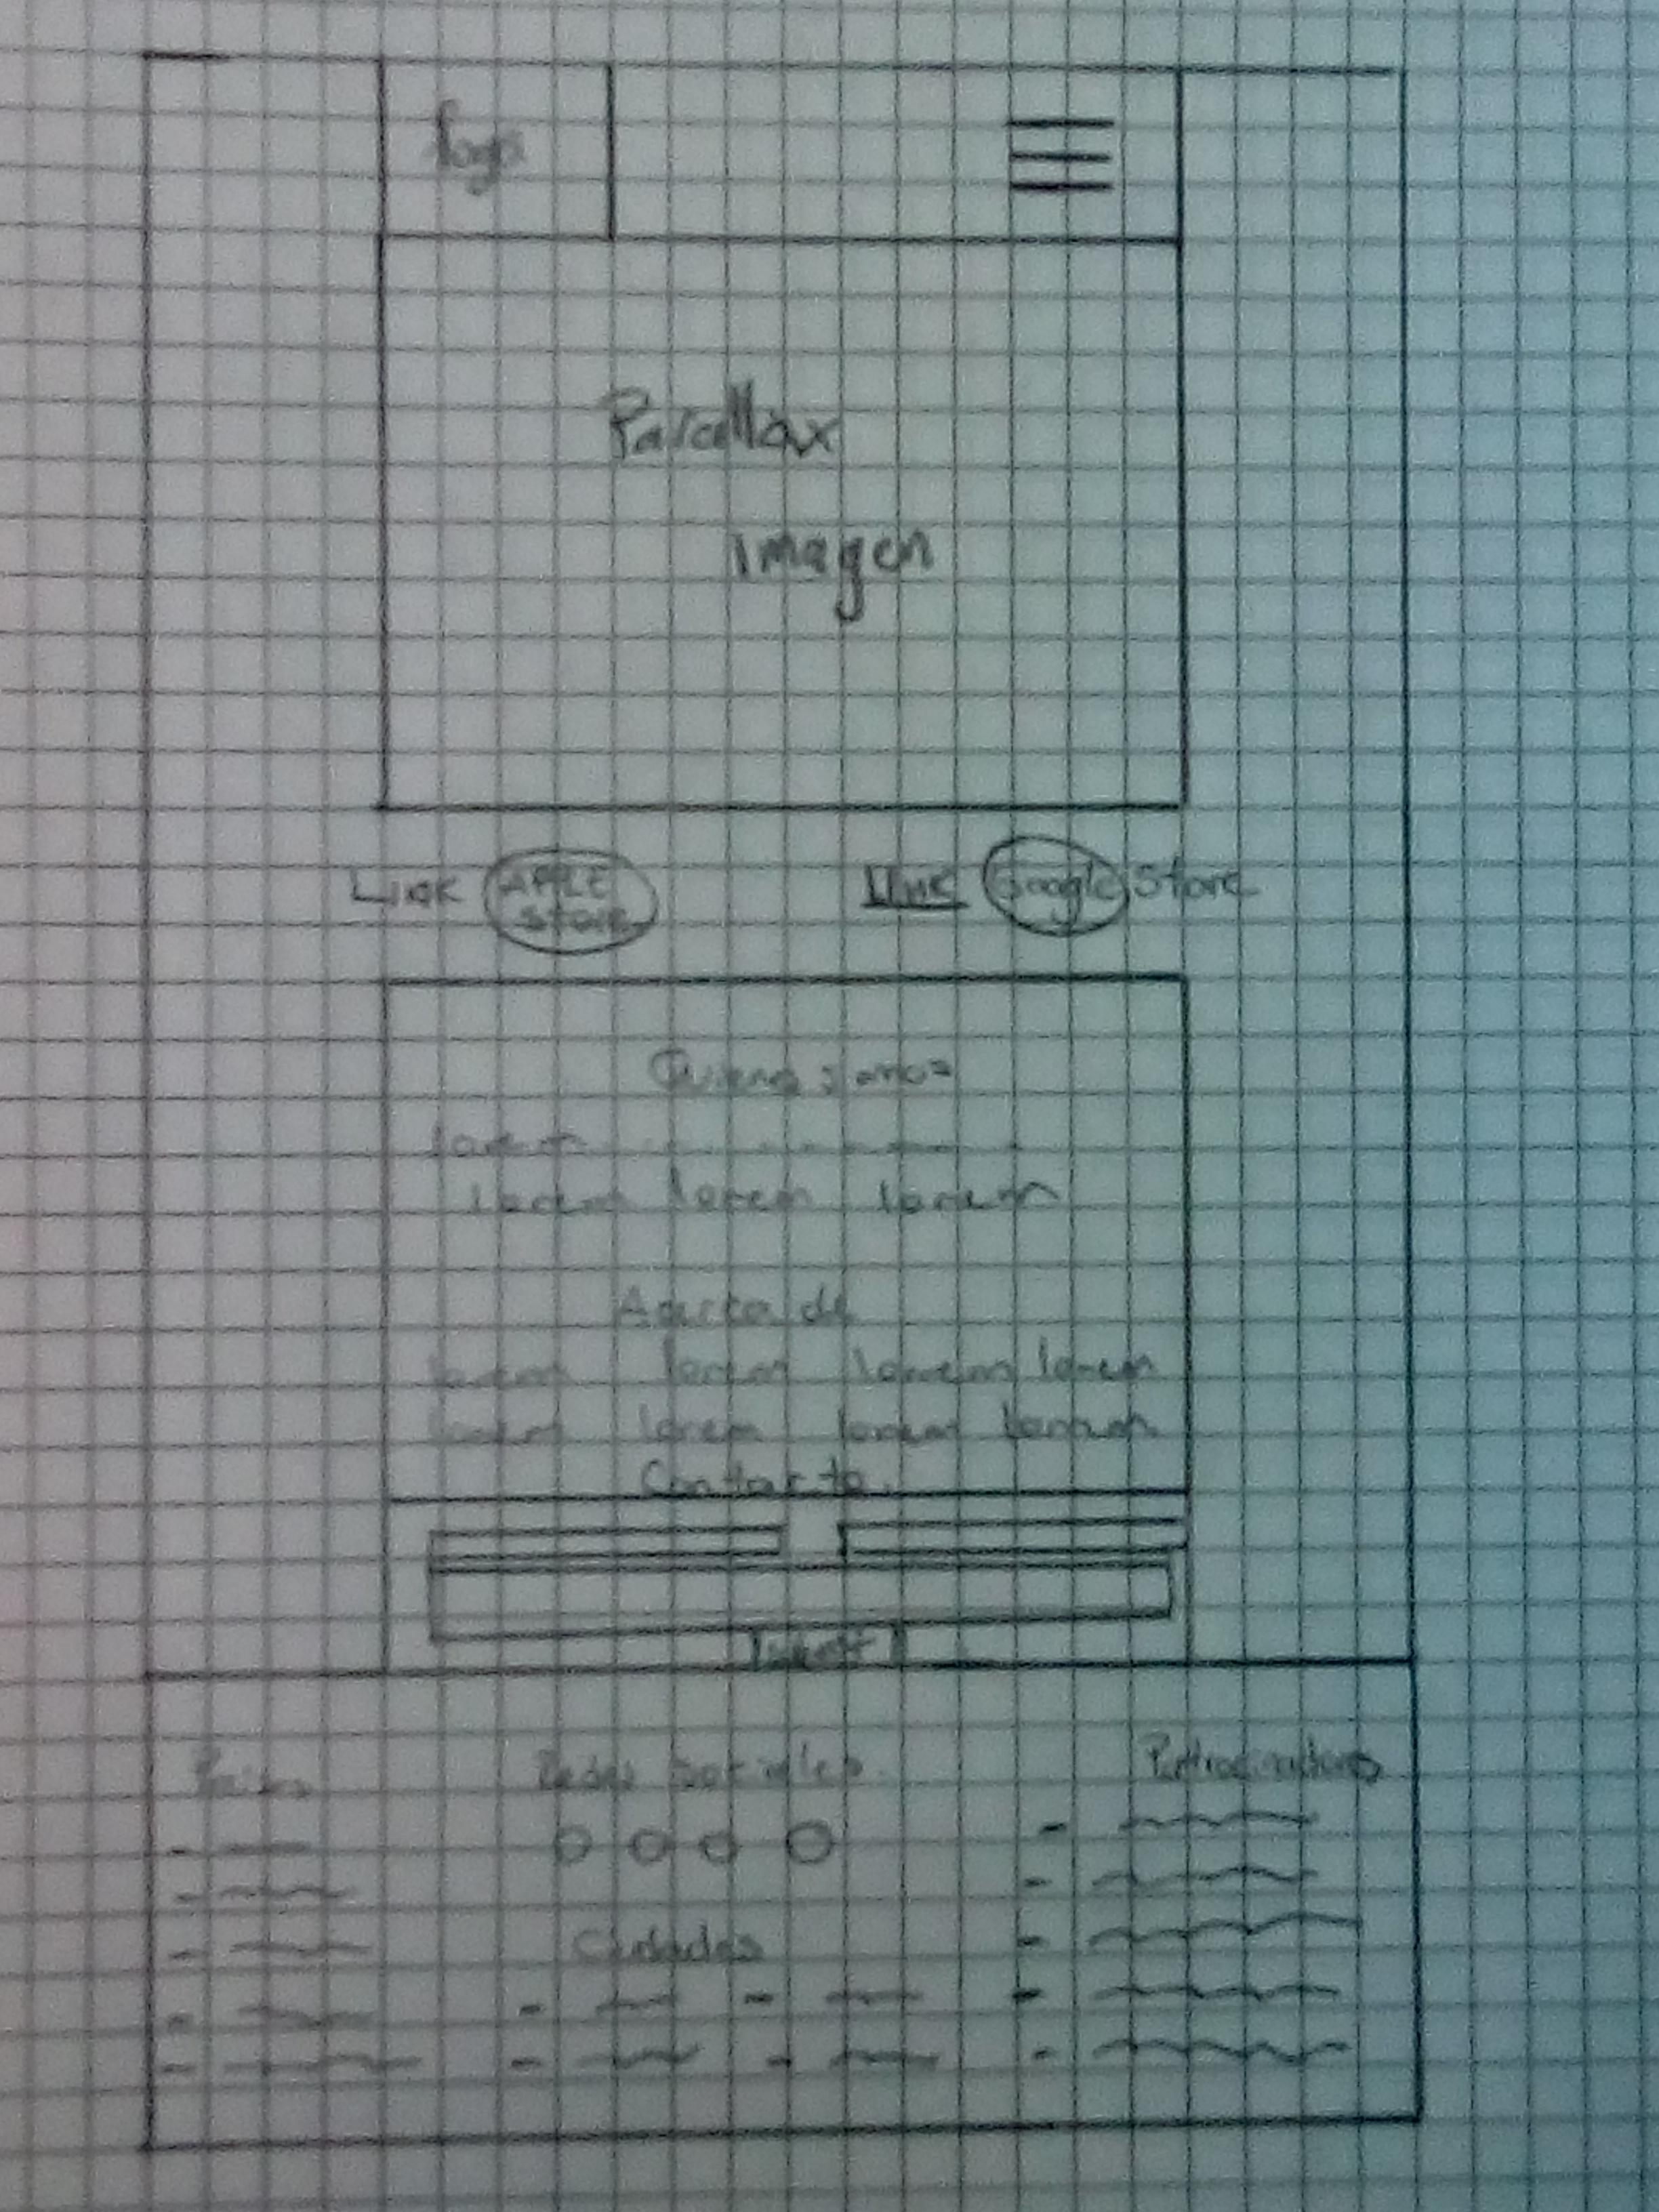 logo
Parallax
imagen
Link APPLE Store
Link Google Store
Quienes somos
lorem
lorem lorem lorem
Acerca de
lorem lorem lorem lorem
lorem lorem lorem lorem
Contacto.
Redes sociales.
Patrocinadores
Ciudades